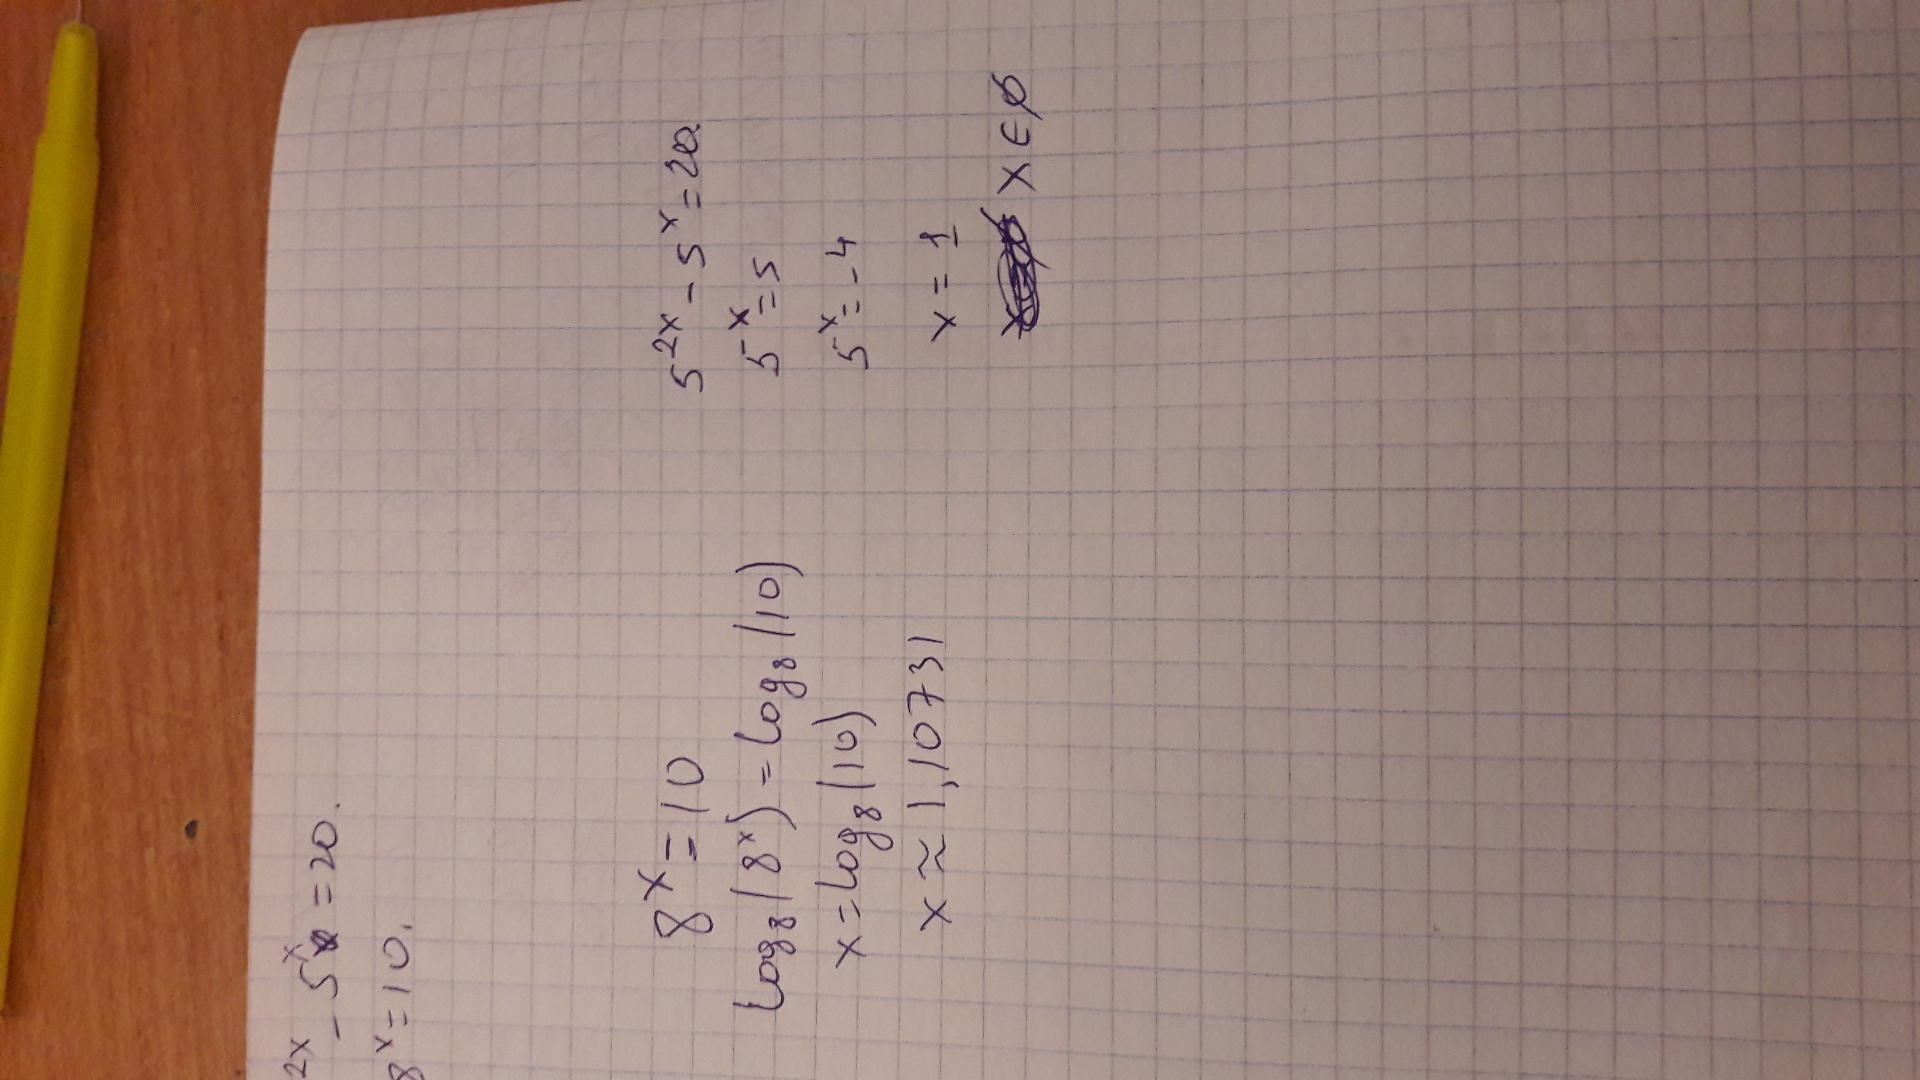 2x - 5^x = 20.
8^x = 10.
8^x = 10
log₈(8^x) = log₈(10)
x = log₈(10)
x ≈ 1,10731
5^2x - 5^x = 20
5^x = 5
5^x = -4
x = 1
x ∈ ∅